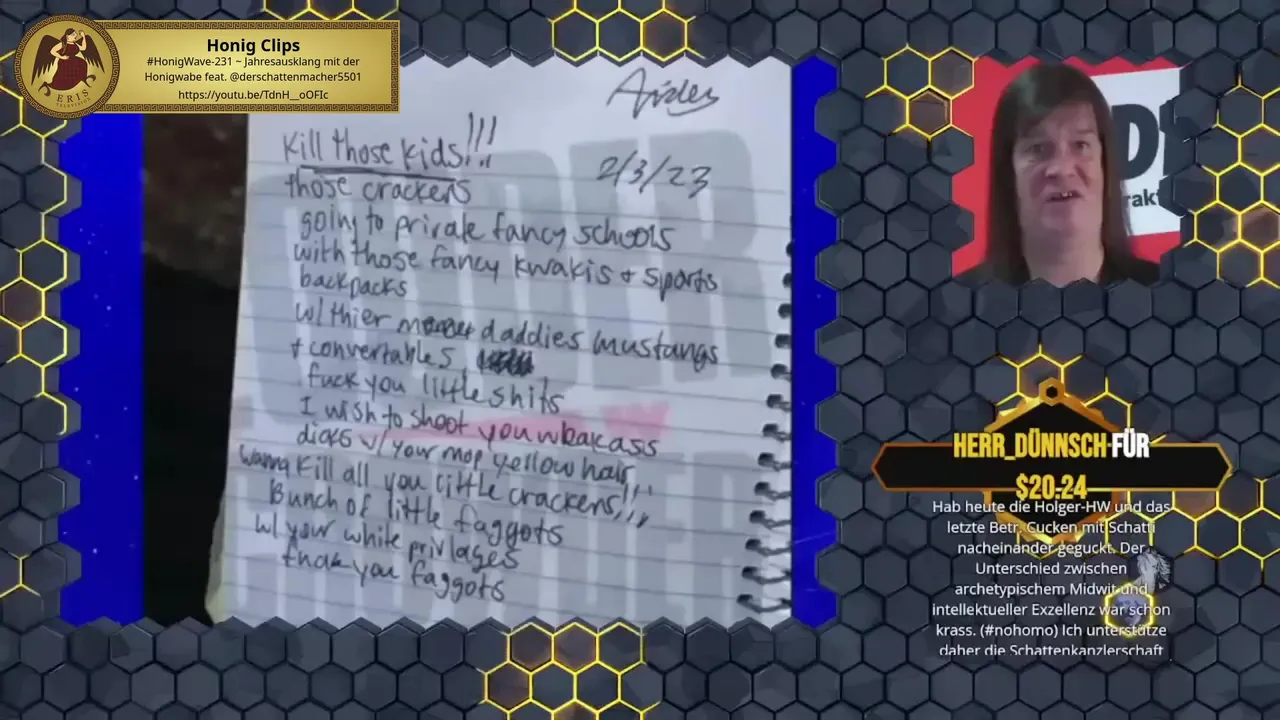 Honig Clips
#HonigWave-231 ~ Jahresausklang mit der
Honigwabe feat. @derschattenmacher5501
https://youtu.be/TdnH__oOFIc
ERIS
TELEVISION
Aiden
Kill those kids!!!
2/3/23
those crackers
going to private fancy schools
with those fancy kwakis + sports
backpacks
w/ thier daddies mustangs
+ convertables
fuck you little shits
I wish to shoot you weakass
dicks w/ your mop yellow hair
wanna kill all you little crackers!!!
Bunch of little faggots
w/ your white privlages
fuck you faggots
HERR_DÜNNSCH FÜR
$20.24
Hab heute die Holger-HW und das
letzte Betr. Cucken mit Schatti
nacheinander geguckt. Der
Unterschied zwischen
archetypischem Midwit und
intellektueller Exzellenz war schon
krass. (#nohomo) Ich unterstütze
daher die Schattenkanzlerschaft